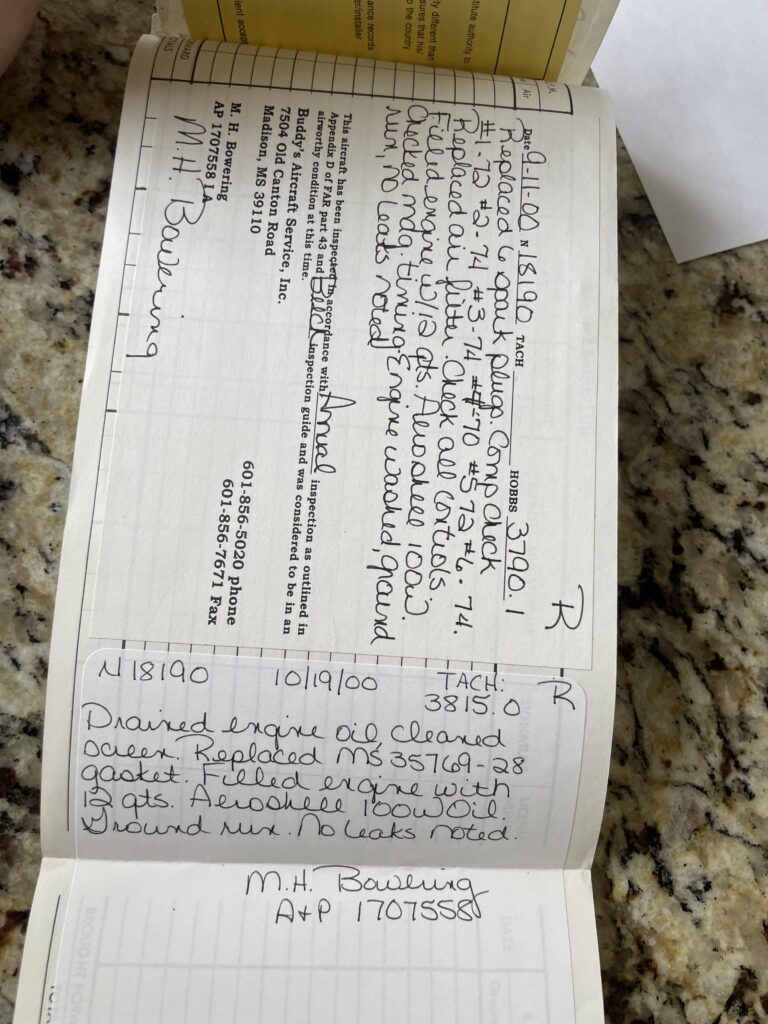 stitute authority to
ty different than
sures that his/
o the country
ance records
er/installer
Air
R
Date 9-11-00 N 18190 TACH HOBBS 3790.1
Replaced 6 spark plugs. Comp check
#1-72 #2-74 #3-74 #4-70 #5 72 #6-74.
Replaced air filter. Check all controls
Filled engine w/12 qts. Aeroshell 100W.
Checked mag. timing. Engine washed, ground
run, no leaks noted
This aircraft has been inspected in accordance with Annual inspection as outlined in
Appendix D of FAR part 43 and Beech inspection guide and was considered to be in an
airworthy condition at this time.
Buddy's Aircraft Service, Inc.
7504 Old Canton Road
Madison, MS 39110
601-856-5020 phone
601-856-7671 Fax
M. H. Bowering
AP 1707558 IA
M.H. Bowering
N18190 10/19/00 TACH: R
3815.0
Drained engine oil, cleaned
screen. Replaced MS35769-28
gasket. Filled engine with
12 qts. Aeroshell 100W Oil.
Ground run. No leaks noted.
M.H. Bowering
A+P 1707558